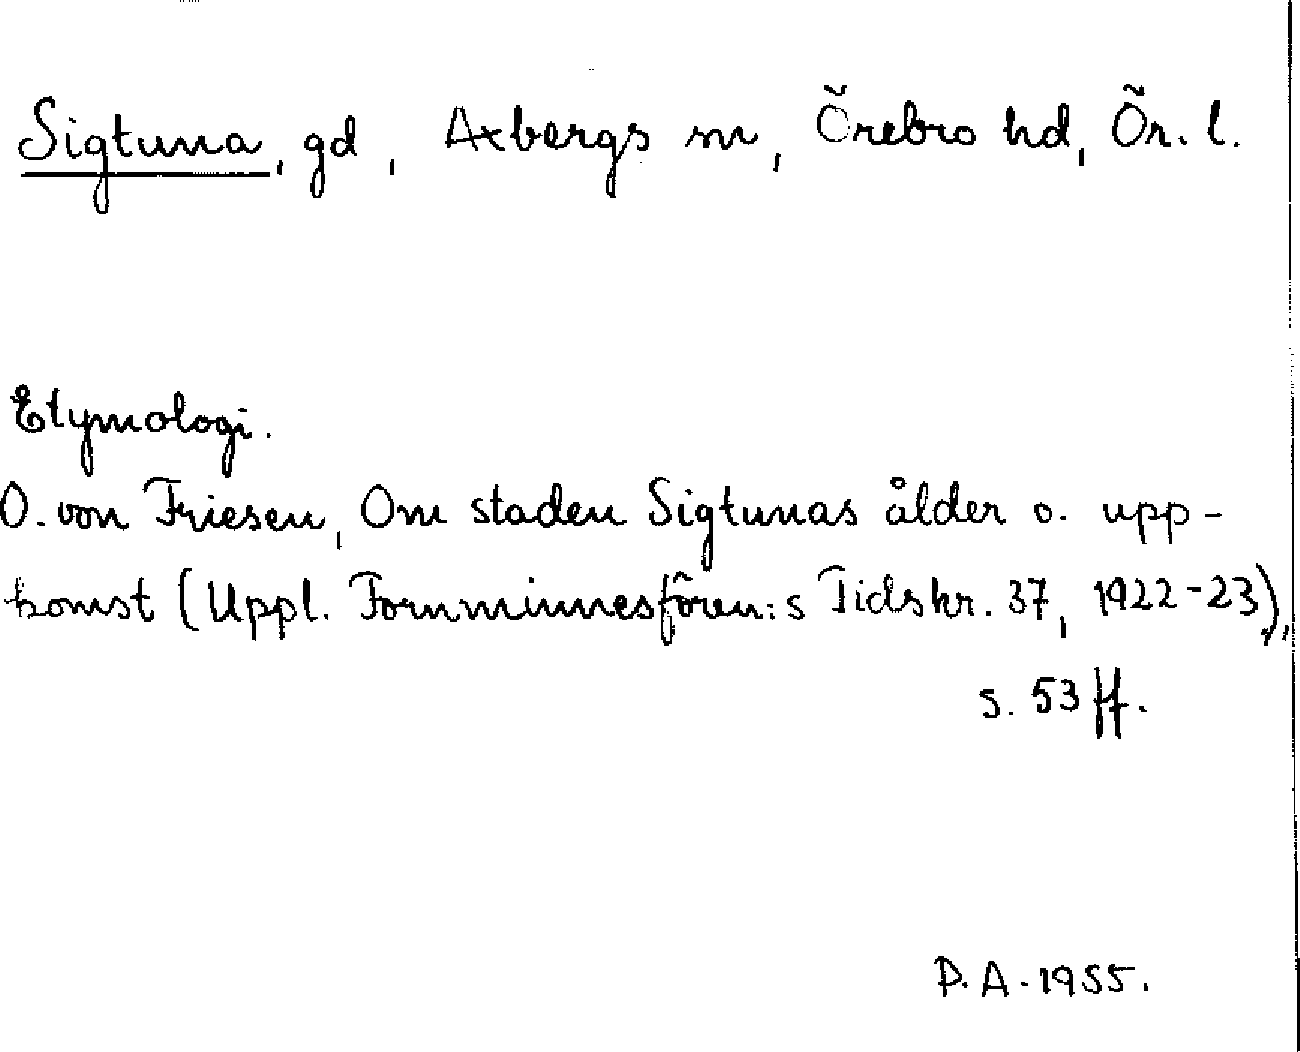 Sigtuna, gd, Axbergs sn, Örebro hd, Ör. l.
Etymologi.
O. von Friesen, Om staden Sigtunas ålder o. upp-
komst (Uppl. Fornminnesfören:s Tidskr. 37, 1922-23),
s. 53 ff.
P.A. 1955.